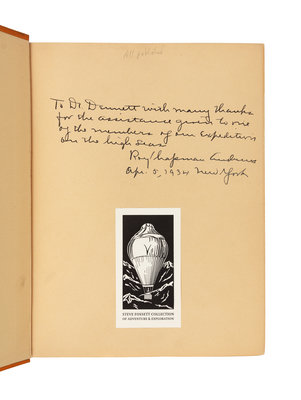 All published
To Dr. Dennett with many thanks
for the assistance given to one
of the members of our expedition
on the high seas
Roy Chapman Andrews
Apr. 5, 1934 New York
STEVE FOSSETT COLLECTION
OF ADVENTURE & EXPLORATION